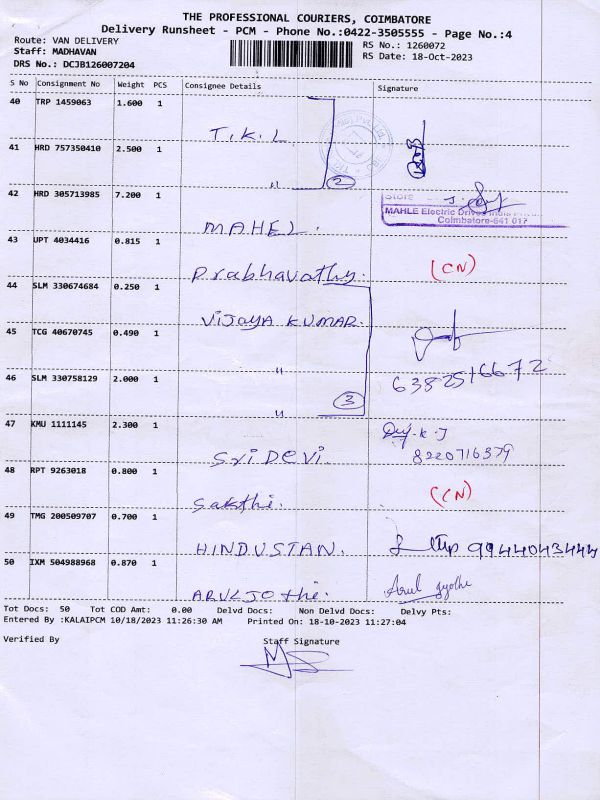 THE PROFESSIONAL COURIERS, COIMBATORE
Delivery Runsheet - PCM - Phone No.:0422-3505555 - Page No.:4
Route: VAN DELIVERY
RS No.: 1260072
Staff: MADHAVAN
RS Date: 18-Oct-2023
DRS No.: DCJB126007204
S No Consignment No Weight PCS Consignee Details Signature
40 TRP 1459063 1.600 1
T.K.L
41 HRD 757350410 2.500 1
" 2
42 HRD 305713985 7.200 1
Store
MAHLE Electric Drives India
Coimbatore-641 017
MAHEL.
43 UPT 4034416 0.815 1
Prabhavathy. (CN)
44 SLM 330674684 0.250 1
VIJAYA KUMAR
45 TCG 40670745 0.490 1
"
46 SLM 330758129 2.000 1
6382516672
" 3
47 KMU 1111145 2.300 1
8220716379
Sri Devi.
48 RPT 9263018 0.800 1
Sakthi. (CN)
49 TMG 200509707 0.700 1
HINDUSTAN. 9944043444
50 IXM 504988968 0.870 1
ARULJOthi. Arul Jyothi
Tot Docs: 50 Tot COD Amt: 0.00 Delvd Docs: Non Delvd Docs: Delvy Pts:
Entered By :KALAIPCM 10/18/2023 11:26:30 AM Printed On: 18-10-2023 11:27:04
Verified By Staff Signature